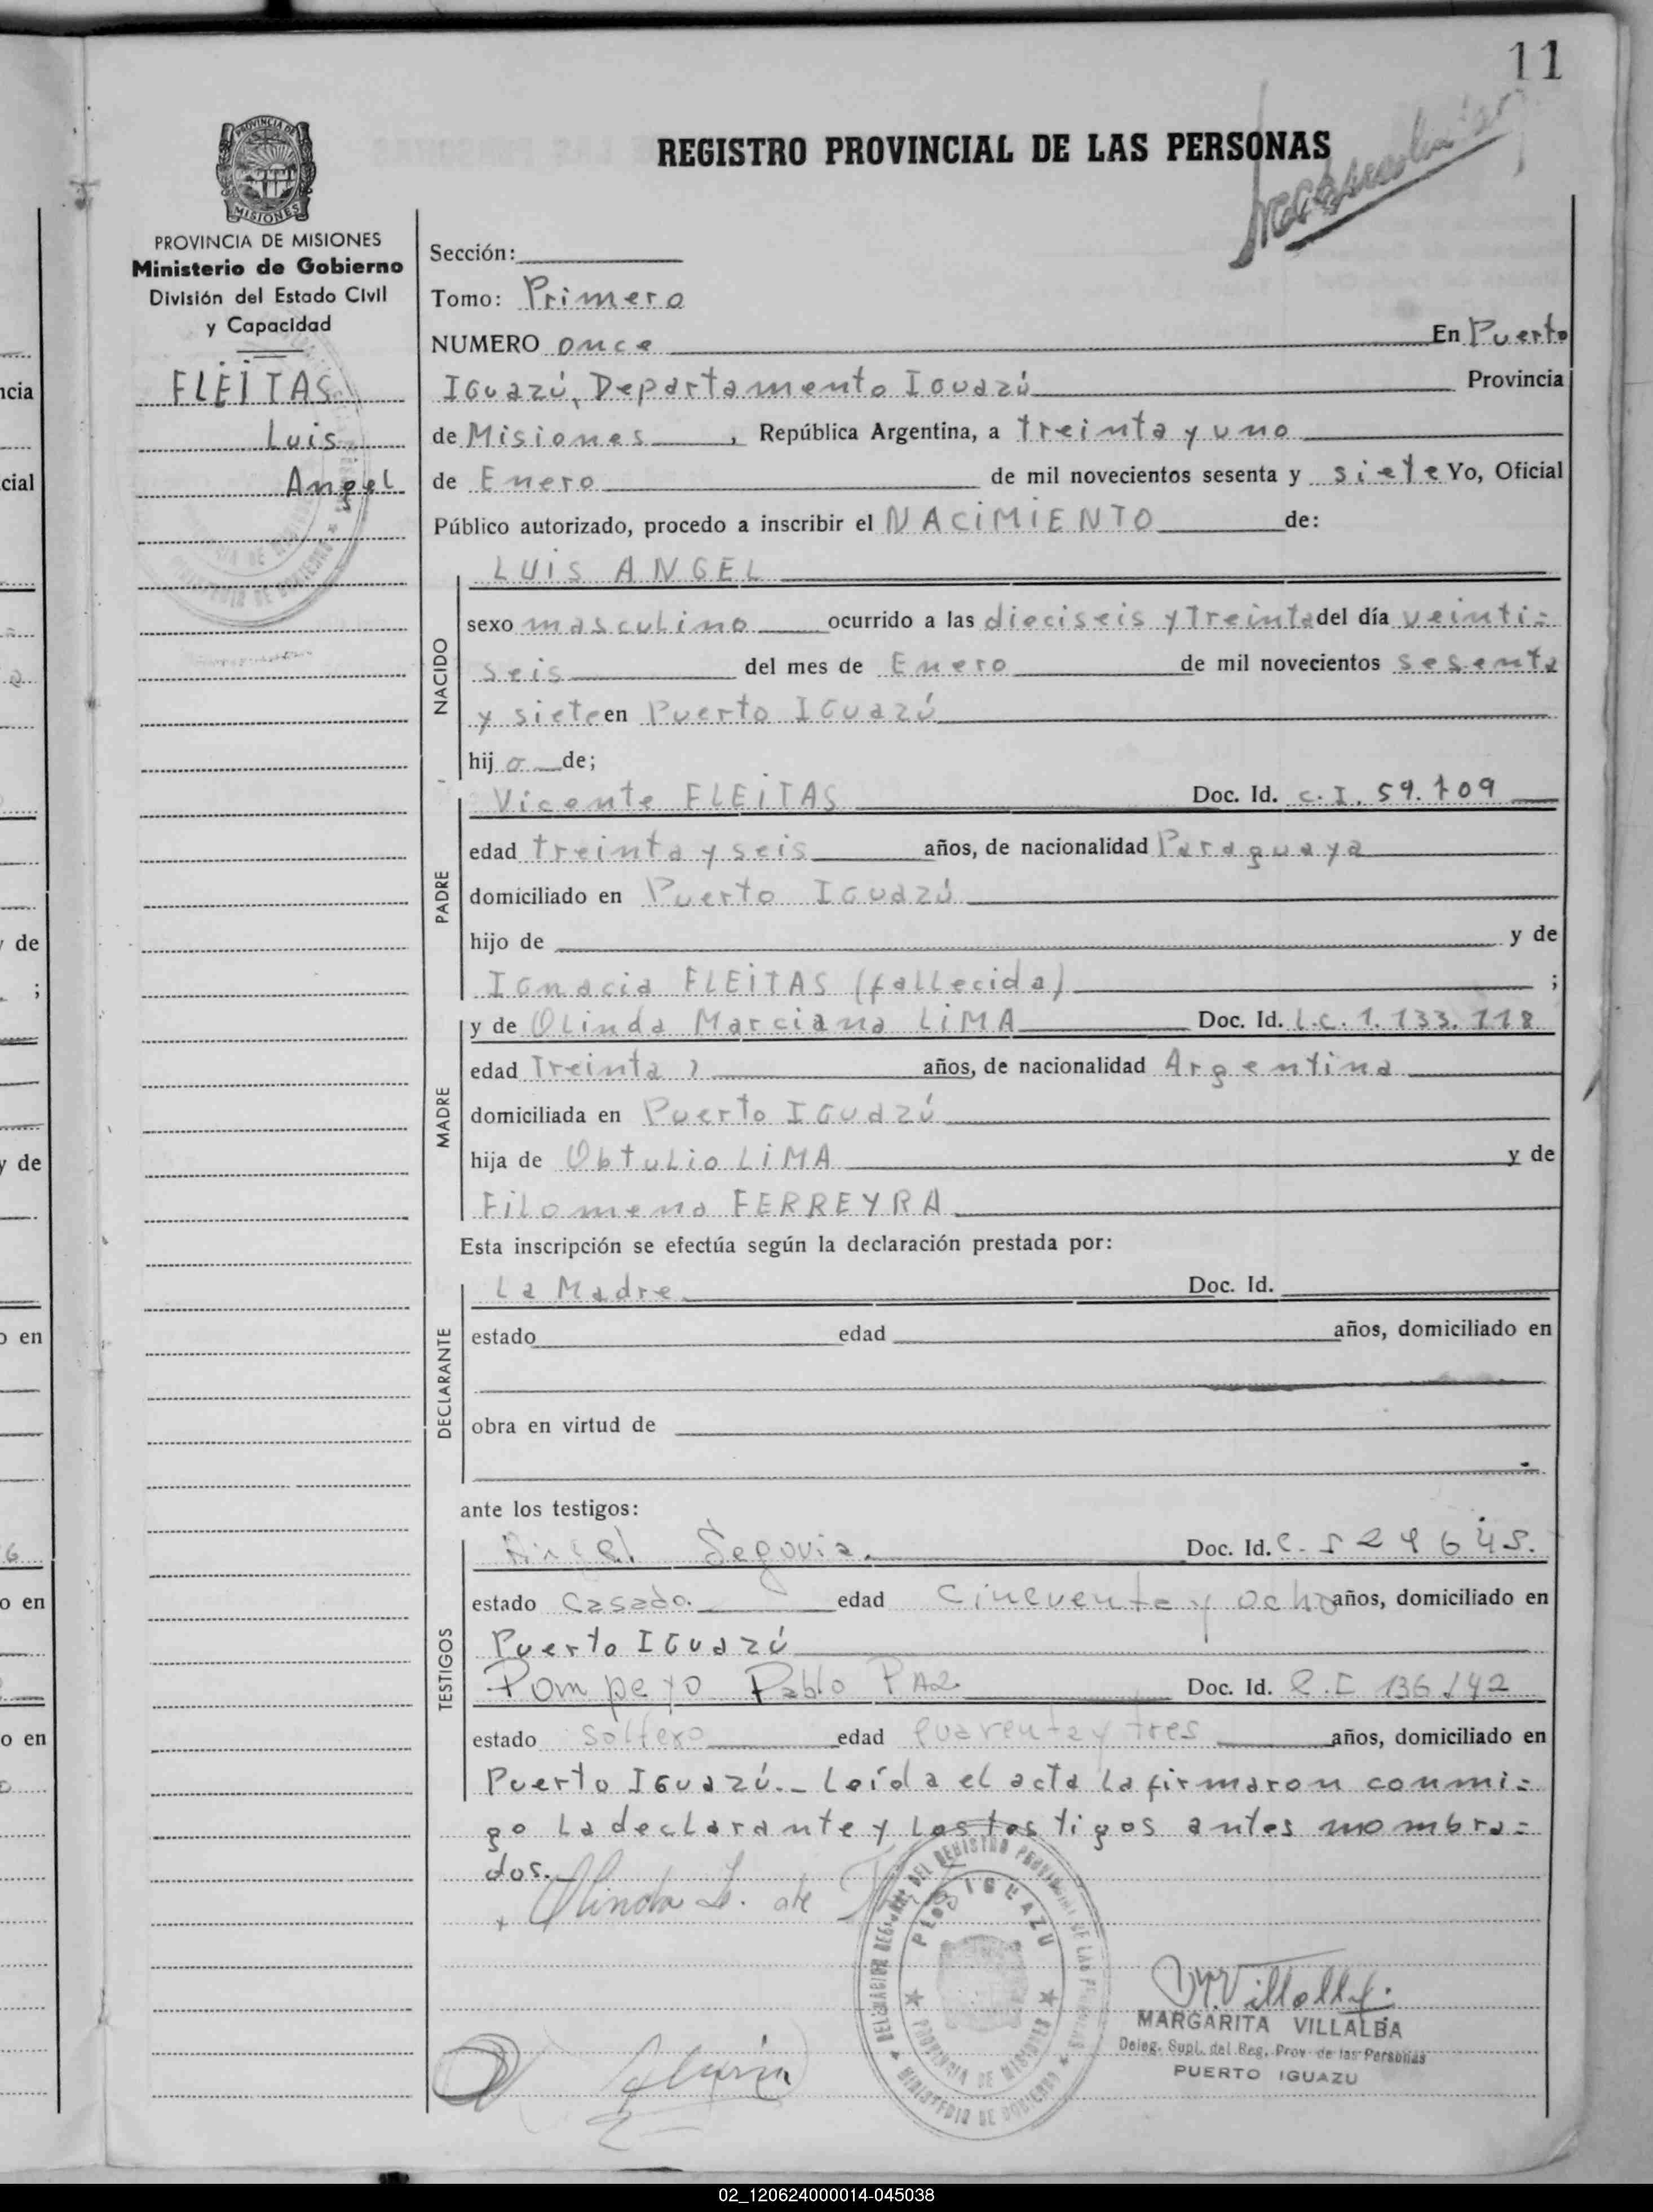 11
REGISTRO PROVINCIAL DE LAS PERSONAS
PROVINCIA DE MISIONES
Ministerio de Gobierno
División del Estado Civil
y Capacidad
FLEITAS
Luis
Angel
Sección:
Tomo: Primero
NUMERO once En Puerto
Iguazú, Departamento Iguazú Provincia
de Misiones, República Argentina, a treinta y uno
de Enero de mil novecientos sesenta y siete Yo, Oficial
Público autorizado, procedo a inscribir el NACIMIENTO de:
LUIS ANGEL
NACIDO
sexo masculino ocurrido a las dieciseis y Treinta del día veinti=
seis del mes de Enero de mil novecientos sesenta
y siete en Puerto Iguazú
hij o de;
PADRE
Vicente FLEITAS Doc. Id. C.I. 59.109
edad treinta y seis años, de nacionalidad Paraguaya
domiciliado en Puerto Iguazú
hijo de y de
Ignacia FLEITAS (fallecida) ;
MADRE
y de Olinda Marciana LIMA Doc. Id. L.C. 1.133.118
edad Treinta años, de nacionalidad Argentina
domiciliada en Puerto Iguazú
hija de Obtulio LIMA y de
Filomena FERREYRA
Esta inscripción se efectúa según la declaración prestada por:
DECLARANTE
La Madre Doc. Id.
estado edad años, domiciliado en
obra en virtud de
ante los testigos:
TESTIGOS
Angel Segovia. Doc. Id.
estado Casado. edad Cincuenta y ocho años, domiciliado en
Puerto Iguazú
Pompeyo Pablo PAZ Doc. Id.
estado Soltero edad Cuarenta y tres años, domiciliado en
Puerto Iguazú.- Leída el acta la firmaron conmi=
go la declarante y los testigos antes nombra=
dos.
Olinda L. de
PTO. IGUAZU
PROVINCIA DE MISIONES
MINISTERIO DE GOBIERNO
MARGARITA VILLALBA
Deleg. Supl. del Reg. Prov. de las Personas
PUERTO IGUAZU
02_120624000014-045038